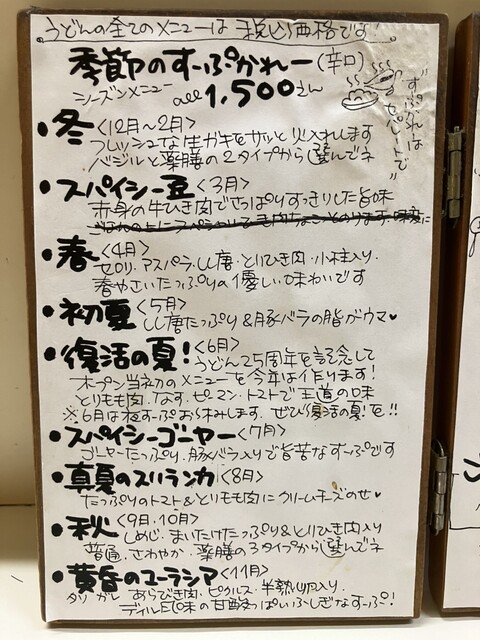 うどんの全てのメニューは 税込価格です
季節のすーぷかれー(辛口)
シーズンメニュー all 1,500えん
"すーぷかれーは
セパレートで"
・冬<12月~2月>
フレッシュな生ガキをサッと火入れします
バジルと薬膳の2タイプから選んでネ
・スパイシー豆<3月>
赤身の牛ひき肉でさっぱりすっきりした旨味
・春<4月>
セロリ、アスパラ、しし唐・とりひき肉・小柱入り
春やさいたっぷりの優しい味わいです
・初夏<5月>
しし唐たっぷり&豚バラの脂がウマ♥
・復活の夏!<6月>
うどん25周年を記念して
オープン当初のメニューを今年は作ります!
とりもも肉、なす、ピーマン、トマトで王道の味
※6月は夜すーぷお休みします。ぜひ復活の夏を!!
・スパイシーゴーヤー<7月>
ゴーヤーたっぷり、豚バラ入りで旨苦なすーぷです
・真夏のスリランカ<8月>
たっぷりのトマト&とりもも肉にクリームチーズのせ♥
・秋<9月、10月>
しめじ、まいたけたっぷり&とりひき肉入り
普通、さわやか、薬膳の3タイプから選んでネ
・黄昏のユーラシア<11月>
タソ ガレ あらびき肉、ピクルス、半熟卵入り、
ディル風味の甘酸っぱいふしぎなすーぷ!